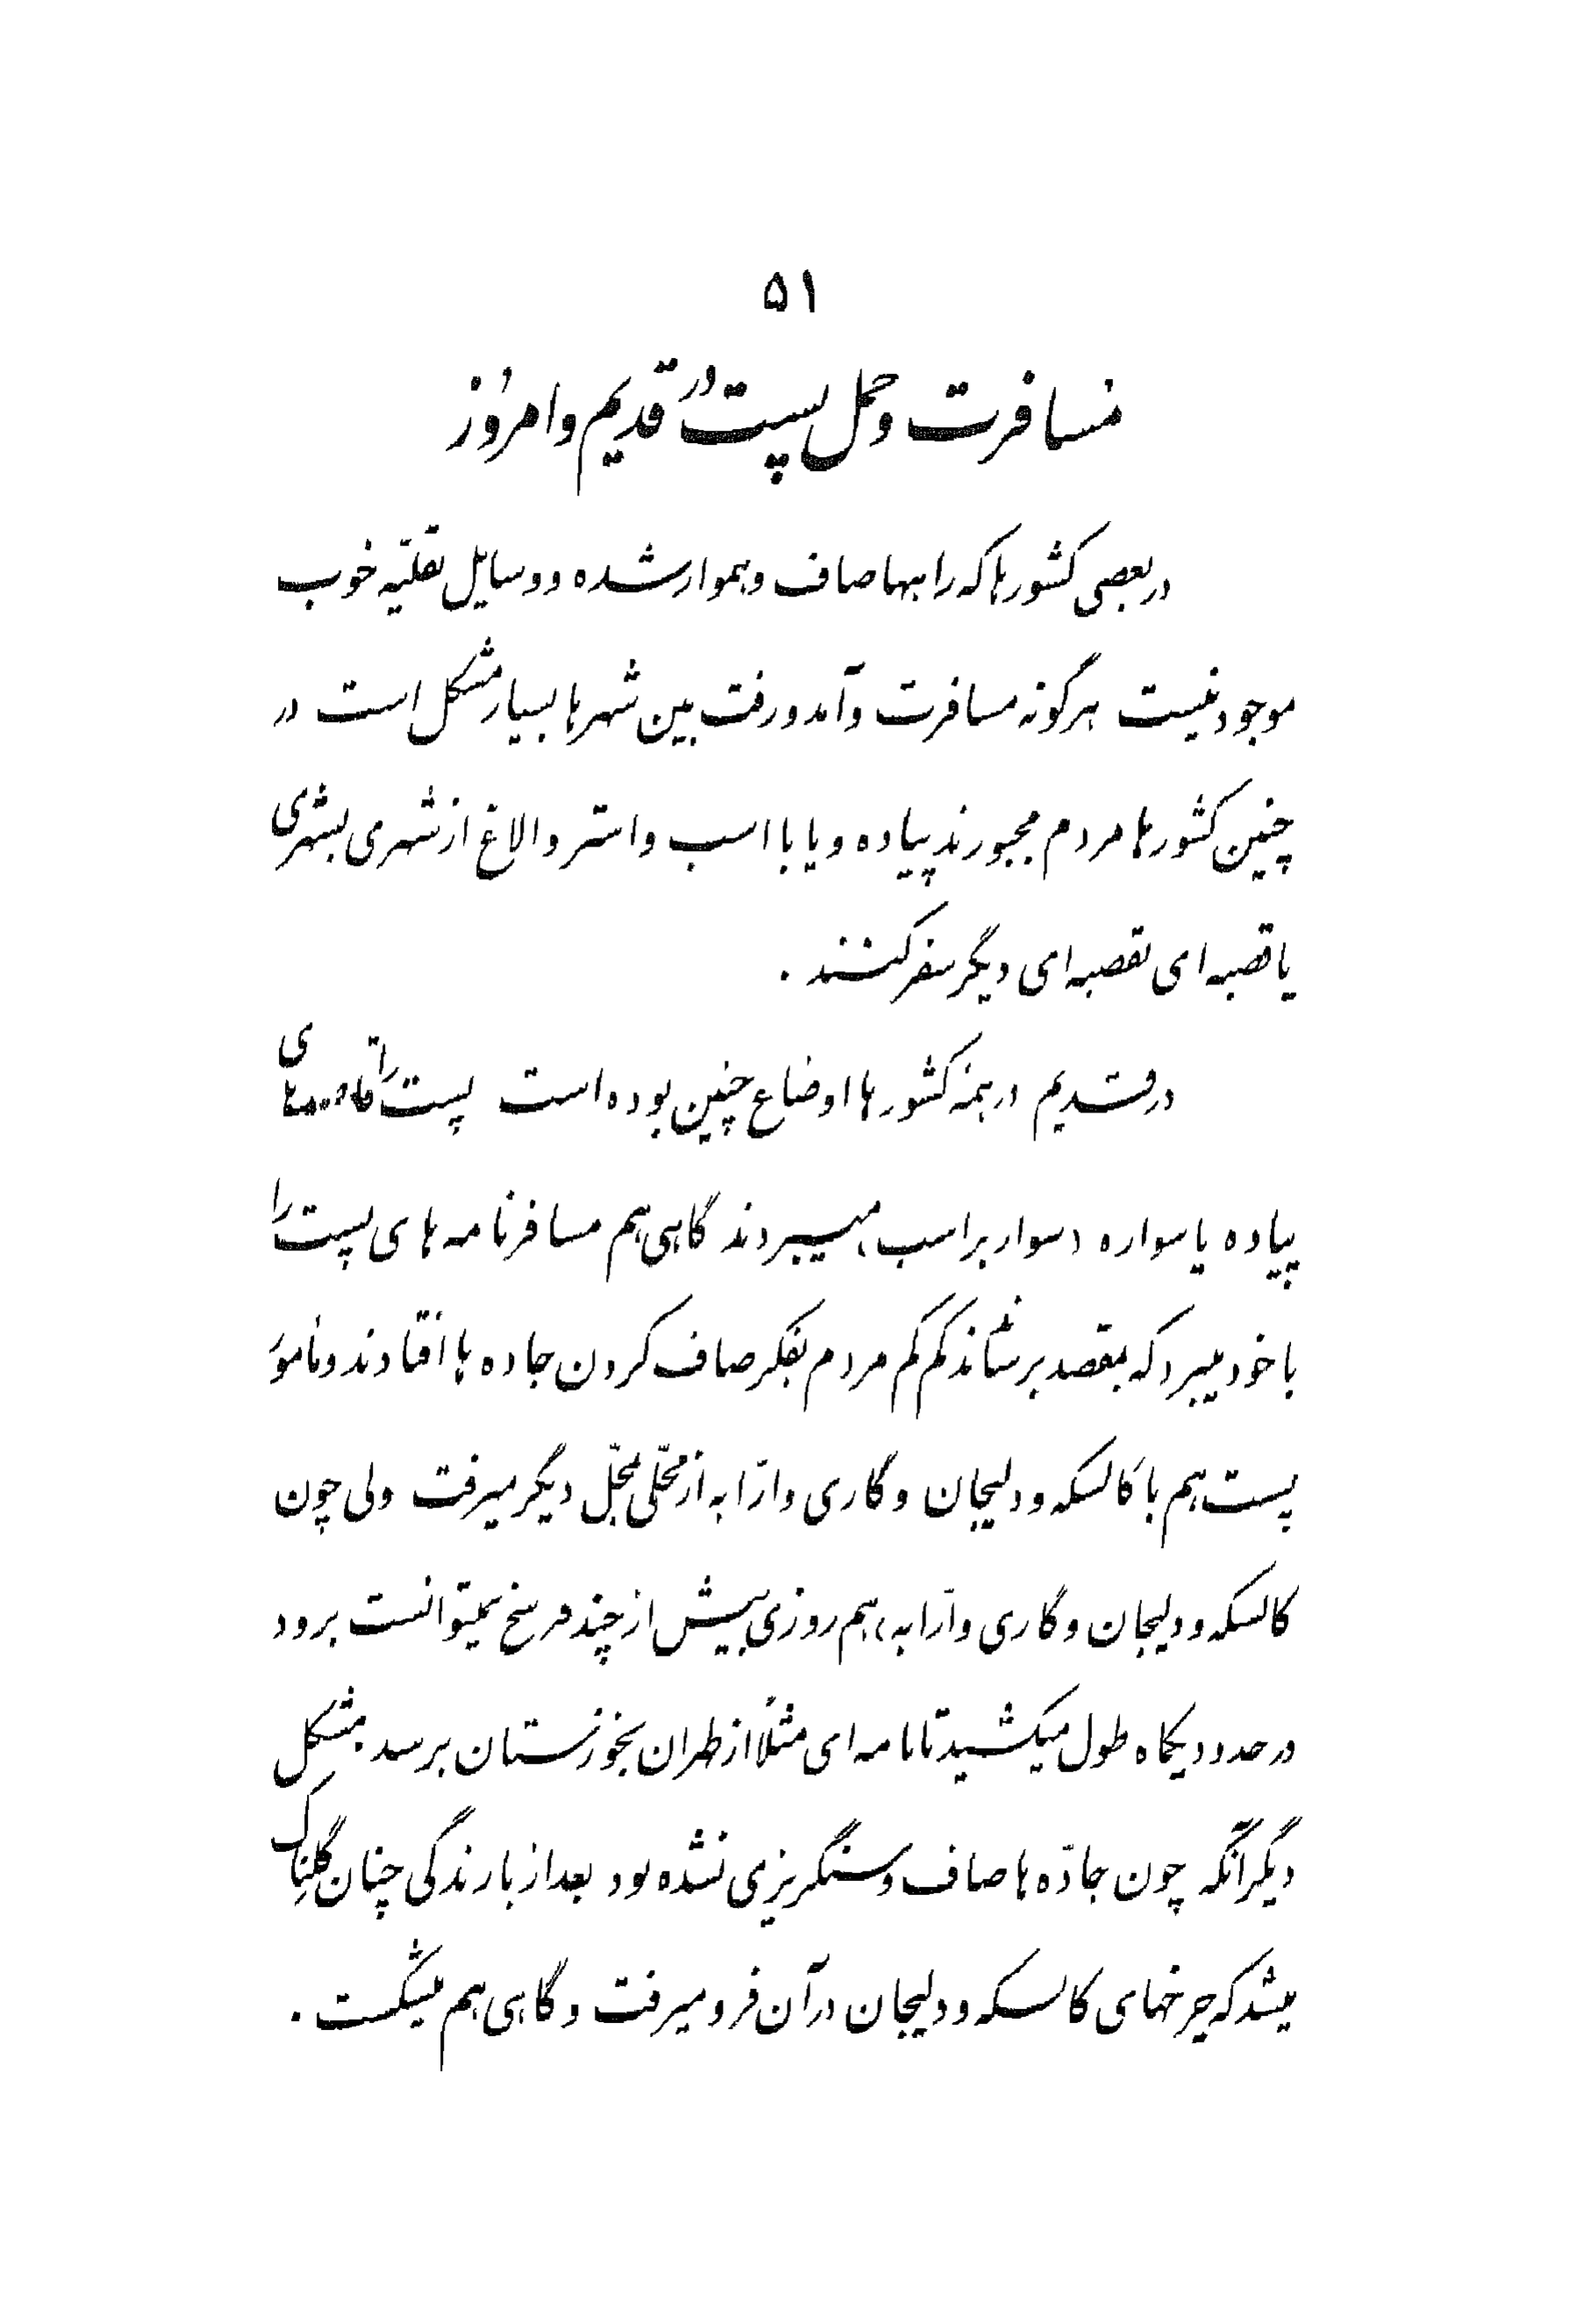 ۵۱
مسافرت و حمل پست در قدیم و امروز
در بعضی کشورها که راهها صاف و هموار شده و وسایل نقلیّه خوب
موجود نیست هرگونه مسافرت و آمد و رفت بین شهرها بسیار مشکل است در
چنین کشورها مردم مجبورند پیاده و یا با اسب و استر و الاغ از شهری بشهری
یا قصبه ای بقصبه ای دیگر سفر کنند .
در قدیم در همهٔ کشورها اوضاع چنین بوده است پست را قاصدهای
پیاده یا سواره (سوار بر اسب) میبردند گاهی هم مسافر نامه های پست را
با خود میبرد که بمقصد برساند کم کم مردم بفکر صاف کردن جاده ها افتادند و مأمور
پست هم با کالسکه و دلیجان و گاری و ارّابه از محلّی بمحلّ دیگر میرفت ولی چون
کالسکه و دلیجان و گاری و ارّابه، هم روزی بیش از چند فرسخ نمیتوانست برود
در حدود یکماه طول میکشید تا نامه ای مثلاً از طهران بخوزستان برسد مشکل
دیگر آنکه چون جادّه ها صاف و سنگریزی نشده بود بعد از بارندگی چنان گلناک
میشد که چرخهای کالسکه و دلیجان در آن فرو میرفت و گاهی هم میشکست .